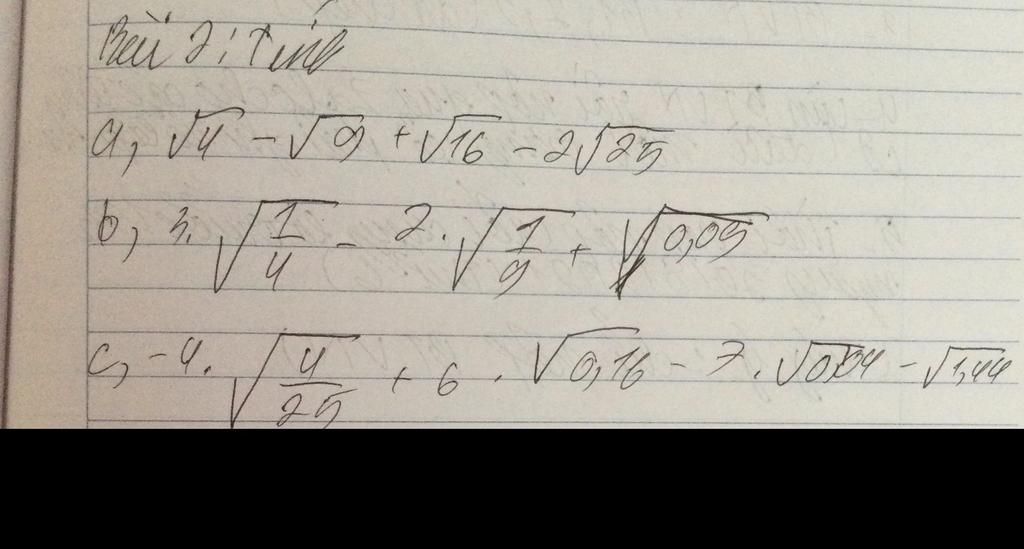 Bài 2: Tính
a, √4 - √9 + √16 - 2√25
b, 3. √(1/4) - 2. √(1/9) + √0,09
c, -4. √(4/25) + 6 . √0,16 - 7. √0,04 - √1,44